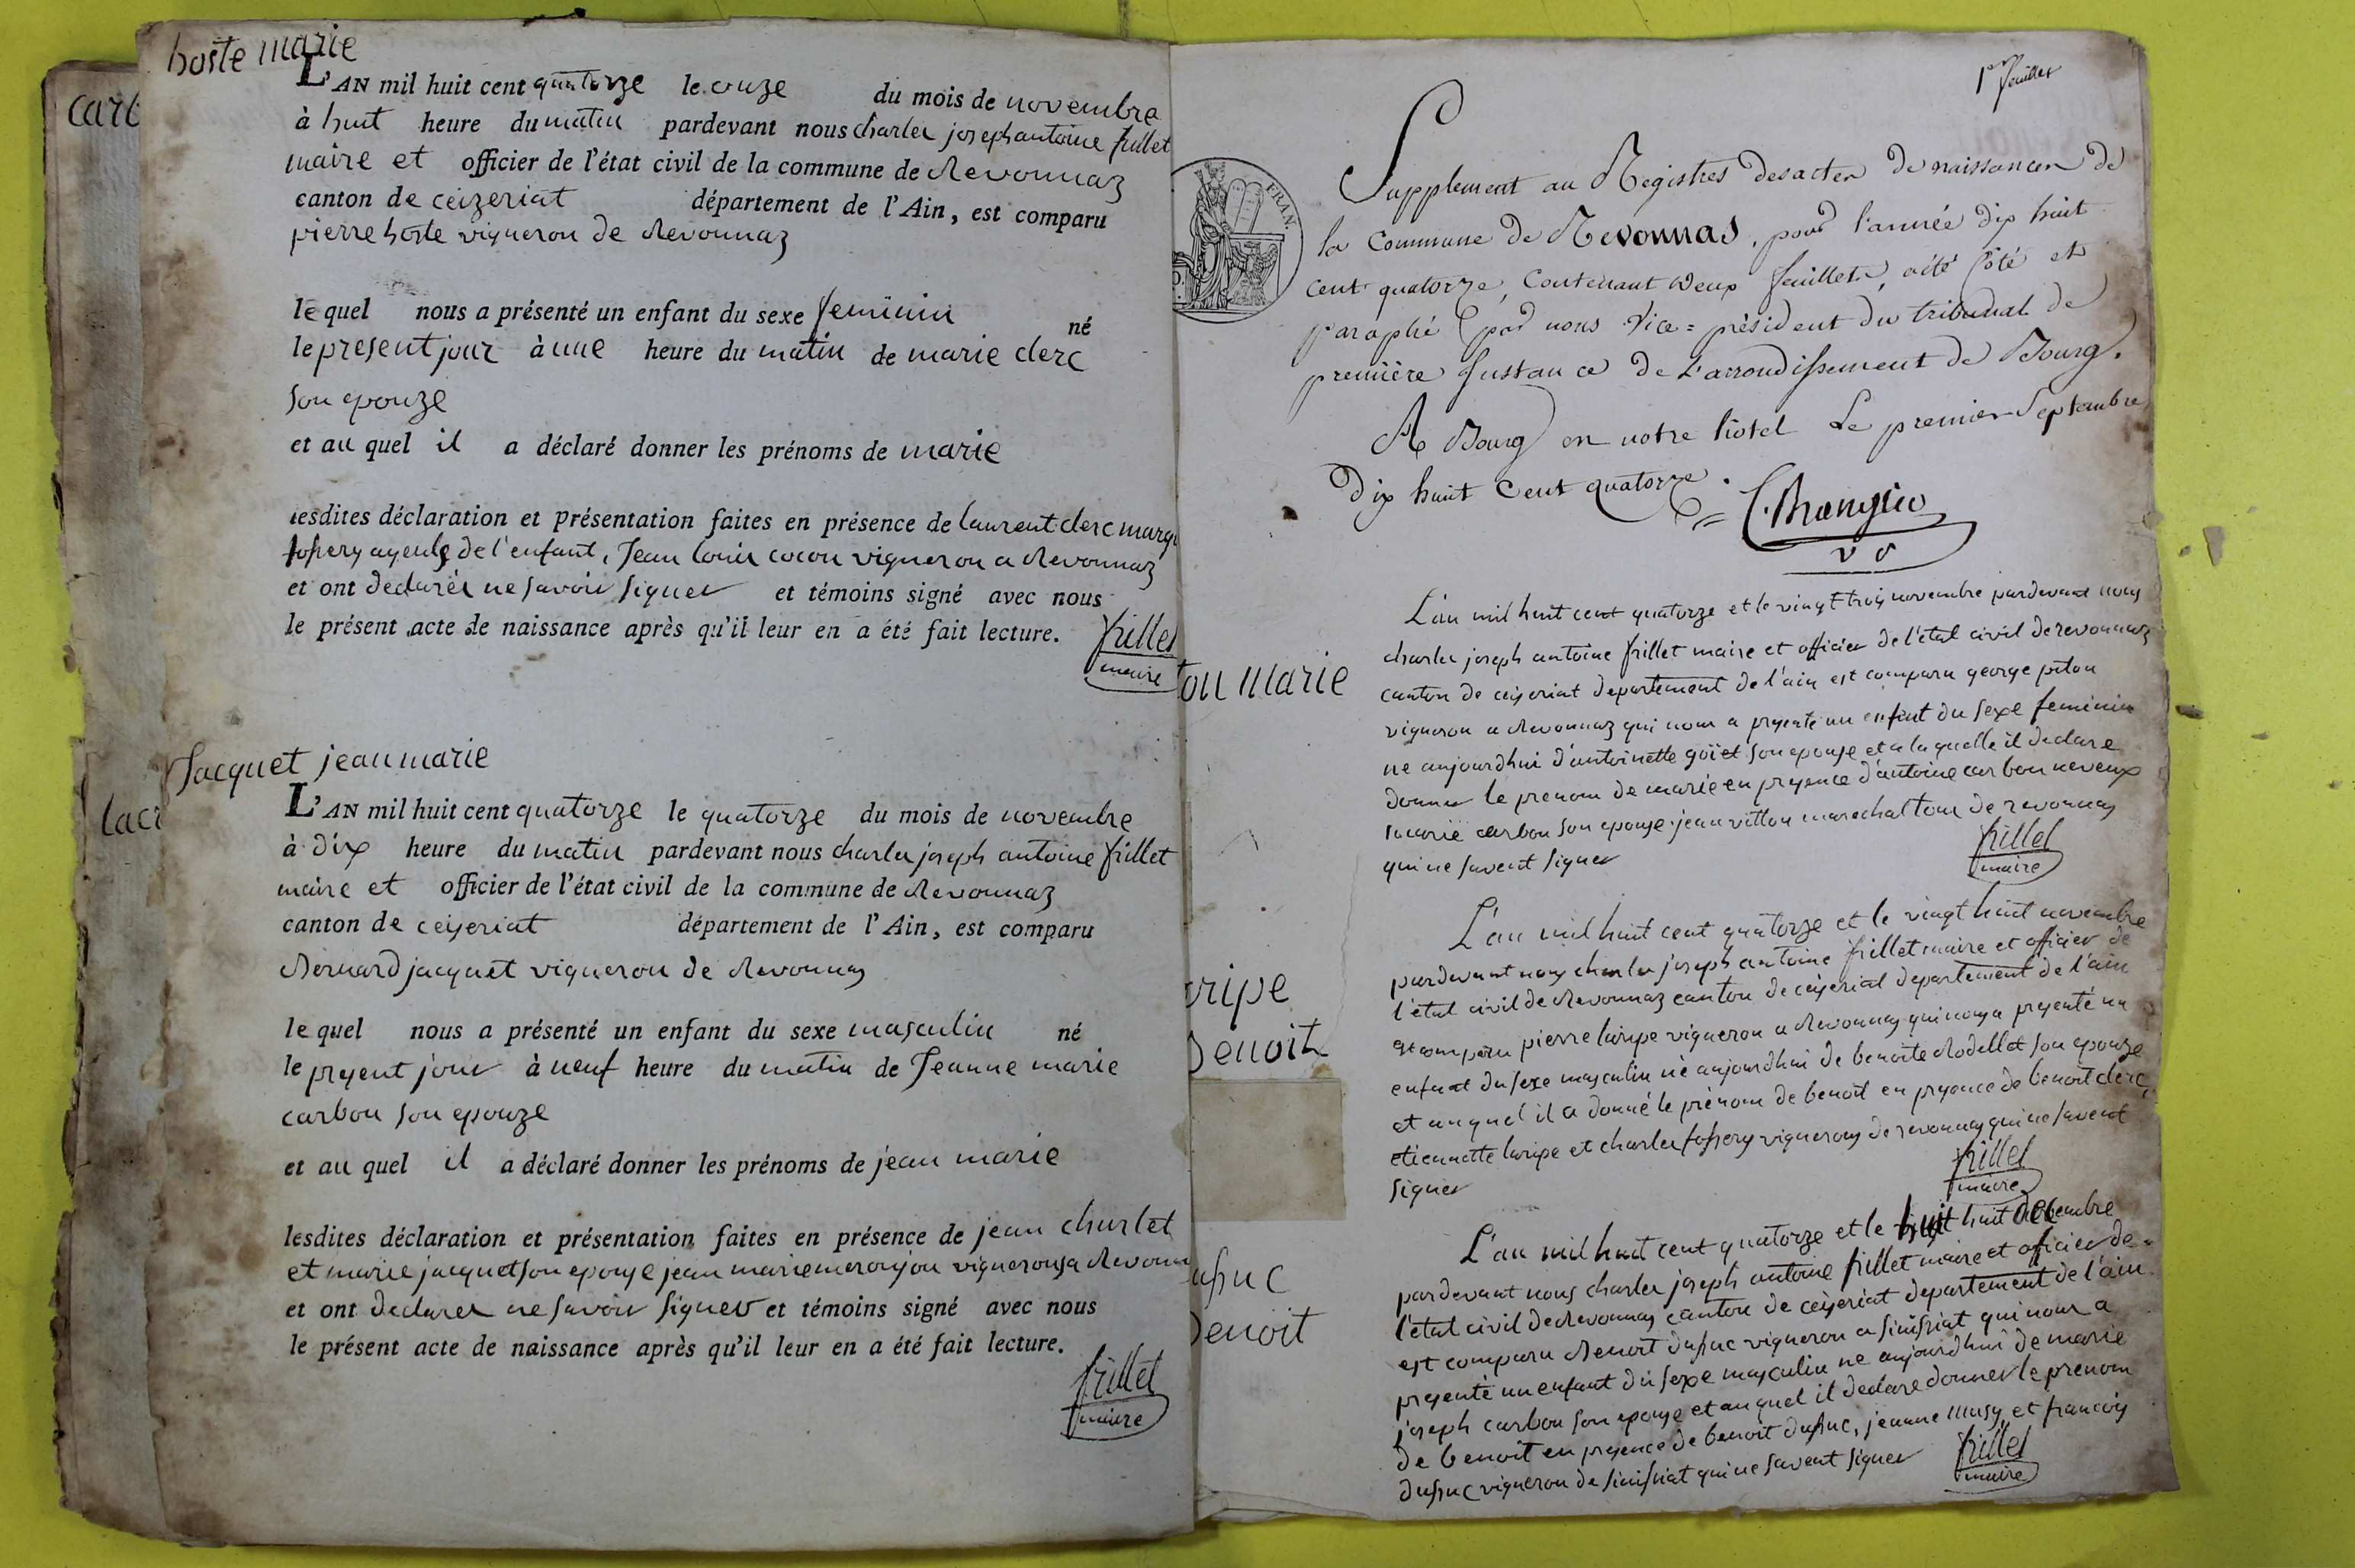 hoste marie
L'AN mil huit cent quatorze le onze du mois de novembre
à huit heure du matin pardevant nous charles joseph antoine frillet
maire et officier de l'état civil de la commune de Revonnaz
canton de ceizeriat département de l'Ain, est comparu
pierre hoste vigneron de Revonnaz
le quel nous a présenté un enfant du sexe feminin né
le present jour à une heure du matin de marie clerc
son epouze
et au quel il a déclaré donner les prénoms de marie
lesdites déclaration et présentation faites en présence de laurent clerc marg
fossery ayeuls de l'enfant, Jean louis cocon vigneron a Revonnaz
et ont declarés ne savoir signer et témoins signé avec nous
le présent acte de naissance après qu'il leur en a été fait lecture.
frillet
maire
carb
Jacquet jean marie
lacr
L'AN mil huit cent quatorze le quatorze du mois de novembre
à dix heure du matin pardevant nous charles joseph antoine frillet
maire et officier de l'état civil de la commune de Revonnaz
canton de ceyseriat département de l'Ain, est comparu
Bernard jacquet vigneron de Revonnas
le quel nous a présenté un enfant du sexe masculin né
le present jour à neuf heure du matin de Jeanne marie
carbon son epouze
et au quel il a déclaré donner les prénoms de jean marie
lesdites déclaration et présentation faites en présence de jean churlet
et marie jacquet son epouse jean marie vignerons a Revonn
et ont declarer ne savoir signer et témoins signé avec nous
le présent acte de naissance après qu'il leur en a été fait lecture.
frillet
maire
1er feuillet
FRAN.
Supplement au Registres des actes de naissances de
la Commune de Revonnas, pour l'année dix huit
cent quatorze, Contenant deux feuillets, a été Coté et
paraphé par nous Vice=président du tribunal de
première Instance de L'arrondissement de Bourg.
A Bourg en notre hotel Le premier Septembre
dix huit Cent quatorze.
L'an mil huit cent quatorze et le vingt trois novembre pardevant nous
charles joseph antoine frillet maire et officier de l'état civil de revonnaz
canton de ceyseriat departement de l'ain est comparu george piton
vigneron a Revonnaz qui nous a presenté un enfant du sexe feminin
ton marie
ne aujourdhui d'antoinette goiet son epouse et a la quelle il declare
donner le prenom de marie en presence d'antoine carbon neveux
marie carbon son epouse jean villon marechal tous de revonnas
qui ne savent signer
frillet
maire
L'an mil huit cent quatorze et le vingt huit novembre
pardevant nous charles joseph antoine frillet maire et officier de
l'état civil de Revonnaz canton de ceyseriat departement de l'ain
est comparu pierre laripe vigneron a Revonnas qui nous a presenté un
ripe
Benoit
enfant du sexe masculin né aujourdhui de benoite Rodellet son epouze
et auquel il a donné le prénom de benoit en presence de benoit clerc,
etiennette laripe et charles fossery vignerons de revonnas qui ne savent
signer
frillet
maire
L'an mil huit cent quatorze et le huit decembre
pardevant nous charles joseph antoine frillet maire et officier de
l'état civil de Revonnas canton de ceyseriat departement de l'ain
est comparu Benoit dufuc vigneron a simsriat qui nous a
ufuc
Benoit
presenté un enfant du sexe masculin ne aujourdhui de marie
joseph carbon son epouse et au quel il declare donner le prenom
de benoit en presence de benoit dufuc, jeanne musy et francois
dufuc vigneron de simsriat qui ne savent signer
frillet
maire